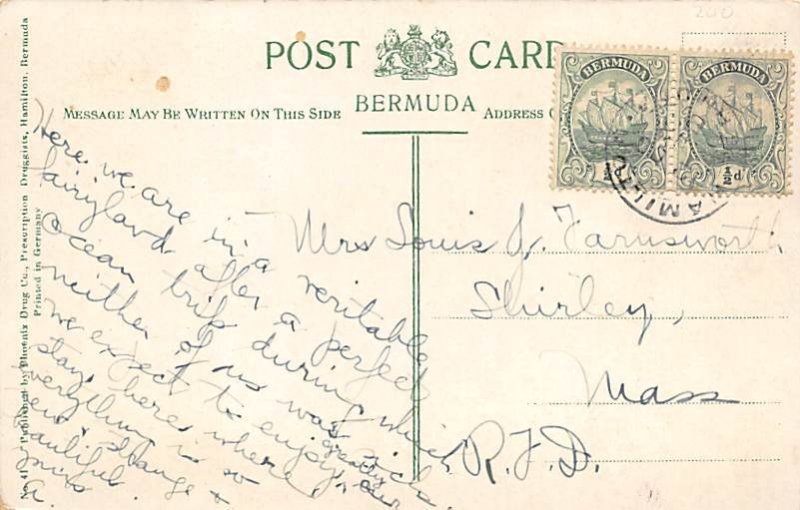 200
POST CARD
BERMUDA
MESSAGE MAY BE WRITTEN ON THIS SIDE
ADDRESS
BERMUDA
½d
BERMUDA
½d
HAMILTON
Here we are in a veritable
fairyland after a perfect
ocean trip during which
neither of us was sick.
We expect to enjoy our
stay here where
everything is so
new & strange &
beautiful.
Yours
A.
Mrs Louis J. Farnsworth
Shirley,
Mass
R.F.D.
No. 41 Published by Phoenix Drug Co., Prescription Druggists, Hamilton, Bermuda
Printed in Germany